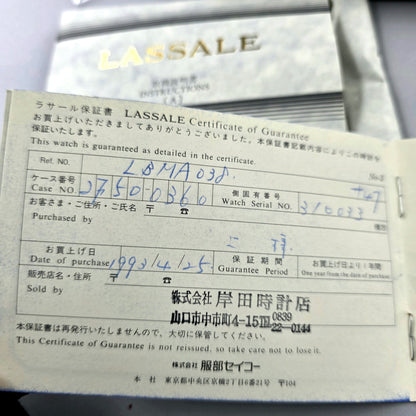 LASSALE
取扱説明書
INSTRUCTIONS
ラサール保証書 LASSALE Certificate of Guarantee
お買上げいただきましてありがとうございました。本保証書記載内容によりこの時計を
保証いたします。
This watch is guaranteed as detailed in the certificate.
Ref. NO. LBMA038
ケース番号
Case NO. 2F50-0360
側固有番号
Watch Serial NO. 310033
お客さま・ご住所・ご氏名 〒 ☎
Purchased by
お買上げ日
Date of purchase 1993/4/25
保証期間
Guarantee Period
お買上げ日より1年間
One year from the date of purchase
販売店名・住所 〒 ☎
Sold by
株式会社 岸田時計店
山口市中市町4-15 ℡ 0839 22-0144
本保証書は再発行いたしませんので、大切に保管してください。
This Certificate of Guarantee is not reissued, so take care not to lose it.
株式会社 服部セイコー
本社 東京都中央区京橋2丁目6番21号 〒104